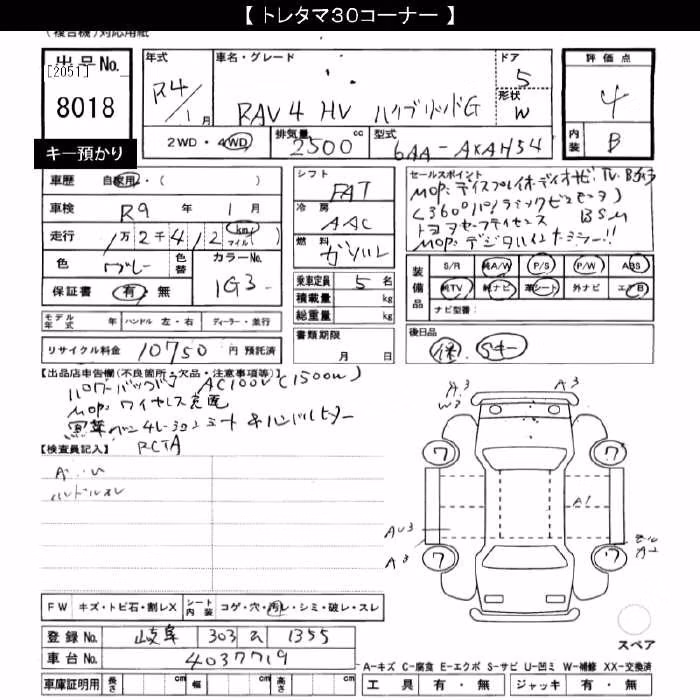 【 トレタマ30コーナー 】
(複合機)対応用紙
出品No.
[2051]
8018
キー預かり
年式 R4/1月
車名・グレード
RAV4 HV ハイブリッドG
ドア 5
形状 W
評価点 4
内装 B
2WD・4WD
排気量 2500 cc
型式 6AA-AXAH54
車歴 自家用・( )
車検 R9 年 1月
走行 1万2千412 km マイル ( )
色 グレー 色替 カラーNo. 1G3
保証書 有・無
シフト FAT
冷房 AAC
燃料 ガソリン
乗車定員 5名
積載量 kg
総重量 kg
書類期限 月 日
セールスポイント
MOP:ディスプレイオーディオナビ TV Bガイド
(360°パノラミックビューモニタ)
トヨタセーフティセンス BSM
MOP:デジタルインナーミラー!!
装備品 S/R 純A/W P/S P/W ABS
純TV 純ナビ 革シート 外ナビ エアB
ナビ型番:
モデル年式 年 ハンドル 左・右 ディーラー・並行
リサイクル料金 10750 円 預託済
後日品
保 Sキー
【出品店申告欄(不良箇所・欠品・注意事項等)】
パワーバックドア AC100V(1500W)
MOP:ワイヤレス充電
黒革 ベンチレーションシート &ハンドルヒーター
RCTA
【検査員記入】
ハンドルスレ
A3
W3
A3
7
7
A1
AU3
A3
7
7
FW キズ・トビ石・割レX シート内装 コゲ・穴・汚レ・シミ・破レ・スレ
登録No. 岐阜 303 る 1355
車台No. 4037719
スペア
A-キズ C-腐食 E-エクボ S-サビ U-凹ミ W-補修 XX-交換済
車庫証明用 長さ cm 幅 cm 高さ cm
工具 有・無 ジャッキ 有・無